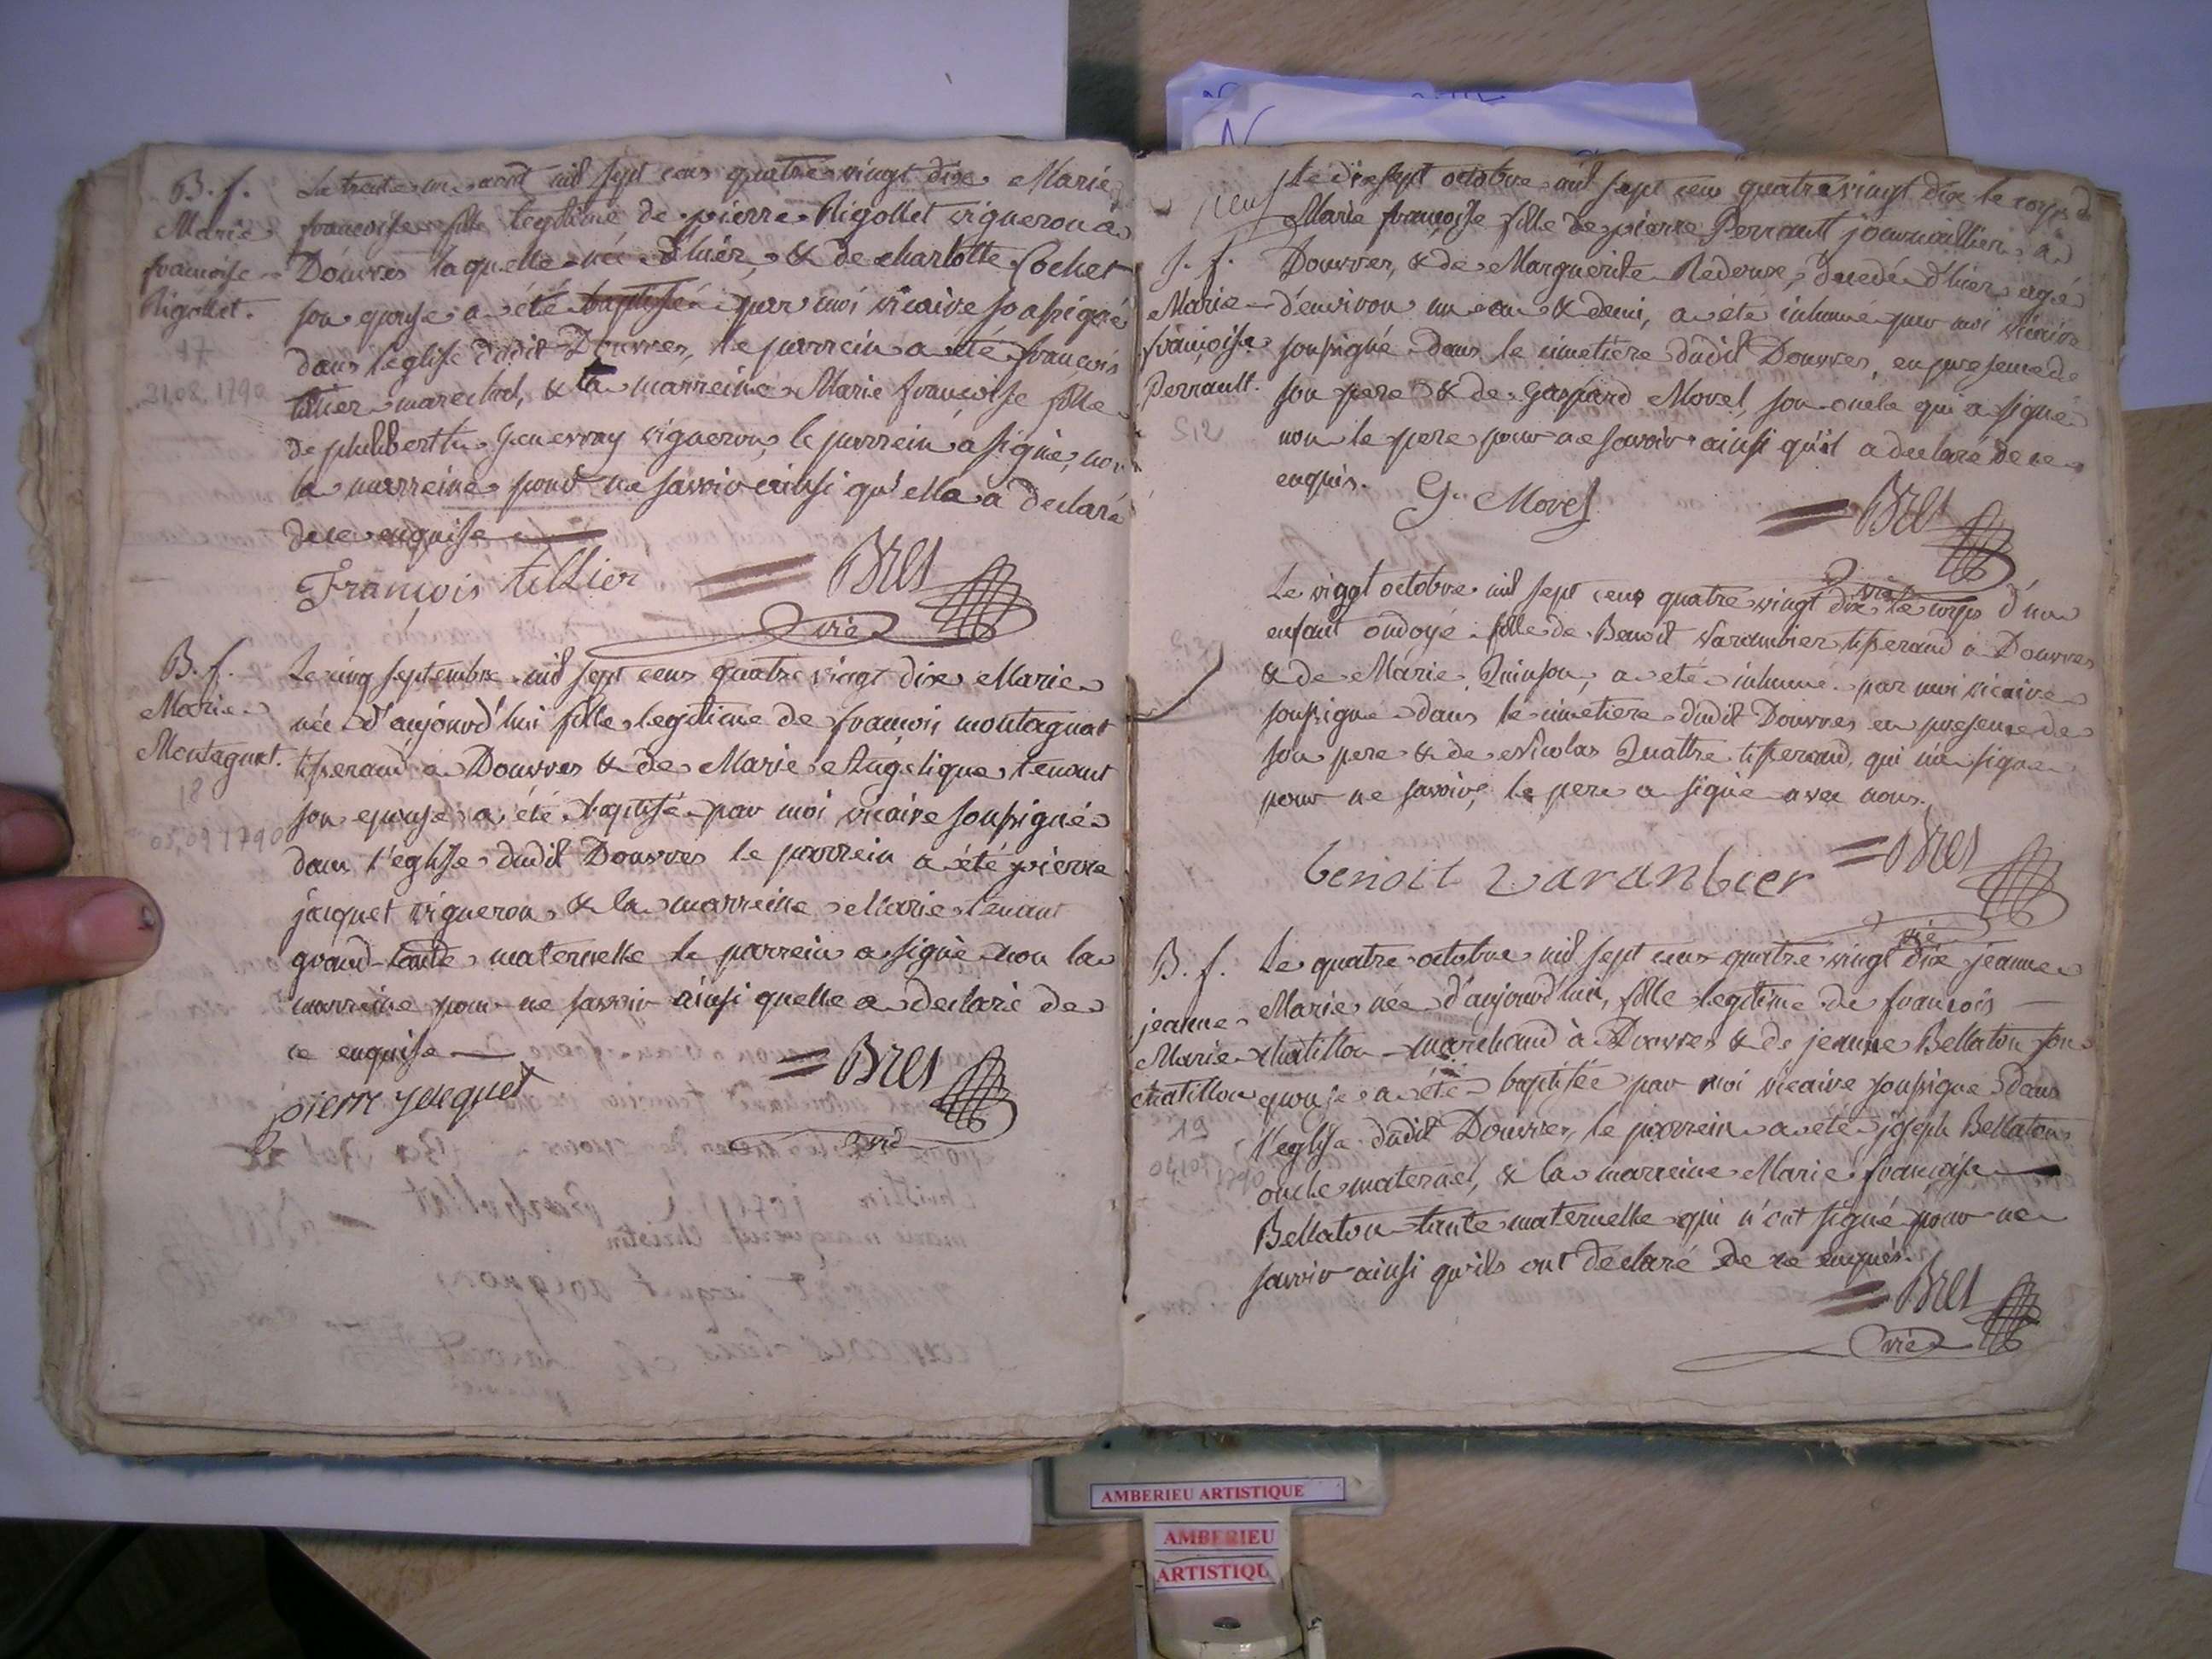 B. f.
Marie
françoise
Rigollet.
17
21.08.1790
Le trente un août mil sept cens quatre vingt dix Marie
françoise fille legitime de pierre Rigollet vigneron a
Douvres laquelle née d'hier, & de charlotte Cochet
son epouse a été baptisée par moi vicaire soussigné
dans l'eglise dudit Douvres, le parrein a été françois
tillier marechal, & la marreine Marie françoise fille
de philiberthe Genevray vigneron, le parrein a signé, non
la marreine pour ne savoir ainsi qu'elle a declaré
de ce enquise
François tillier = Bres
vic
B. f.
Marie
Montagnat.
18
05.09.1790
Le cinq septembre mil sept cens quatre vingt dix Marie
née d'aujourd'hui fille legitime de françois montagnat
tisserand a Douvres & de Marie Angelique tenant
son epouse a été baptisée par moi vicaire soussigné
dans l'eglise dudit Douvres le parrein a été pierre
jacquet vigneron & la marreine Marie tenant
grand-tante maternelle le parrein a signé non la
marreine pour ne savoir ainsi quelle a declaré de
ce enquise
pierre jacquet = Bres
vic
S. f.
Marie
françoise
Perrault.
Le dix sept octobre mil sept cens quatre vingt dix le corps de
Marie françoise fille de pierre Perrault journaillier a
Douvres, & de Marguerite Redoux, decedée d'hier agé
d'environ un an & demi, a été inhumé par moi vicaire
soussigné dans le cimetiere dudit Douvres, en presence de
son pere & de Gaspard Morel, son oncle qui a signé
non le pere pour ne savoir ainsi qu'il a declaré de ce
enquis.
G. Morel = Bres
vic
Le viggt octobre mil sept cens quatre vingt dix le corps d'un
enfant ondoyé fille de Benoit Varambier tisserand a Douvres
& de Marie Quinson, a été inhumé par moi vicaire
soussigné dans le cimetiere dudit Douvres en presence de
son pere & de Nicolas Quattre tisserand, qui n'a signé
pour ne savoir, le pere a signé avec nous.
benoit varanbier = Bres
vic
B. f.
jeanne
Marie
chatillon
19
04.10.1790
Le quatre octobre mil sept cens quatre vingt dix jeanne
Marie née d'aujourd'hui, fille legitime de françois
chatillon marchand à Douvres & de jeanne Bellaton son
epouse a été baptisée par moi vicaire soussigné dans
l'eglise dudit Douvres, le parrein a été joseph Bellaton
oncle maternel, & la marreine Marie françoise
Bellaton tante maternelle qui n'ont signé pour ne
savoir ainsi qu'ils ont declaré de ce enquis.
= Bres
vic
AMBERIEU ARTISTIQUE
AMBERIEU
ARTISTIQU